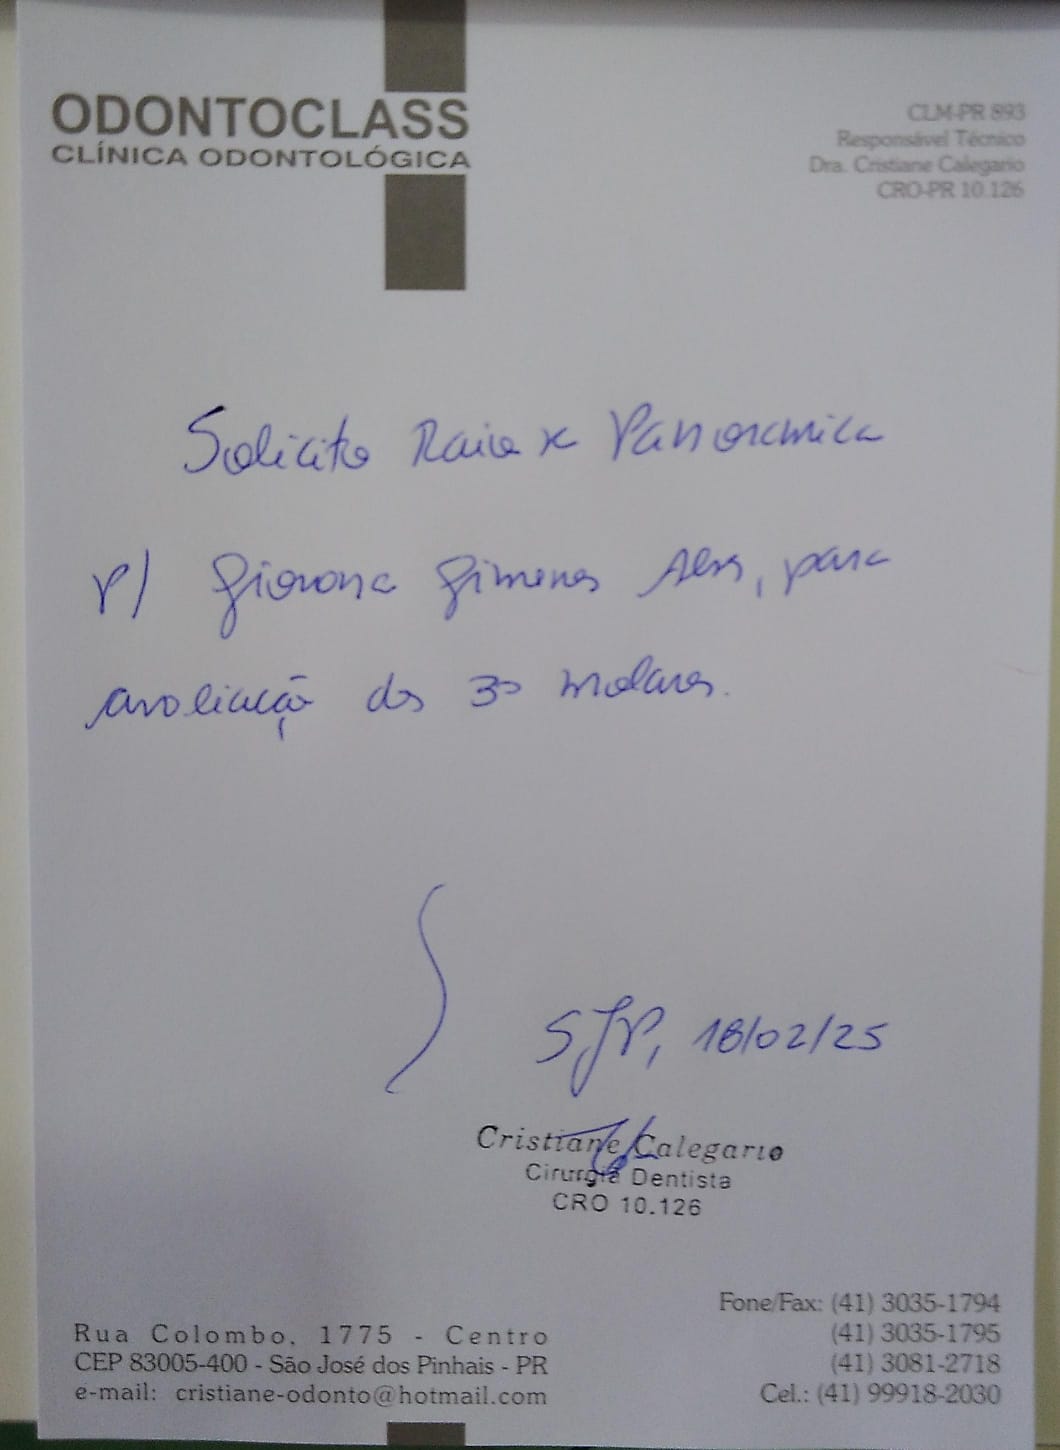 ODONTOCLASS
CLÍNICA ODONTOLÓGICA
CLM-PR 893
Responsável Técnico
Dra. Cristiane Calegario
CRO-PR 10.126
Solicito Raio x Panoramica
p/ Giovana Gimenes Alves, para
avaliação dos 3os molares.
SJP, 18/02/25
Cristiane Calegario
Cirurgiã Dentista
CRO 10.126
Rua Colombo, 1775 - Centro
CEP 83005-400 - São José dos Pinhais - PR
e-mail: cristiane-odonto@hotmail.com
Fone/Fax: (41) 3035-1794
(41) 3035-1795
(41) 3081-2718
Cel.: (41) 99918-2030